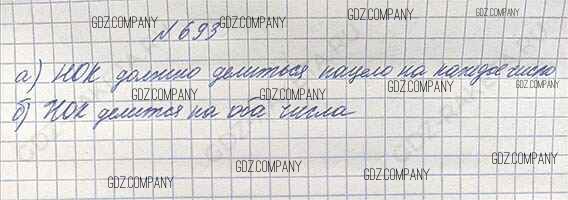 GDZ.COMPANY GDZ.COMPANY GDZ.COMPANY
№ 693
а) НОК должно делиться нацело на каждое число
GDZ.COMPANY GDZ.COMPANY GDZ.COMPANY
б) НОК делится на оба числа
GDZ.COMPANY GDZ.COMPANY GDZ.COMPANY GDZ.COMPANY